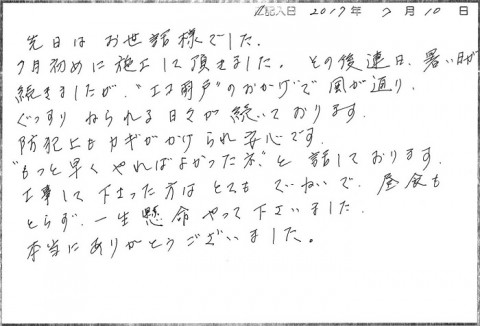 ご記入日 2017年 7月10日
先日はお世話様でした。
7月初めに施工して頂きました。その後連日、暑い日が
続きましたが、"エコ雨戸"のおかげで風が通り、
ぐっすりねられる日々が続いております。
防犯上もカギがかけられ安心です。
"もっと早くやればよかったネ"と話しております。
工事して下さった方はとてもていねいで、昼食も
とらず、一生懸命やって下さいました。
本当にありがとうございました。